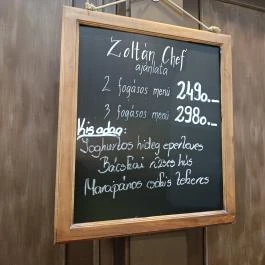 Zoltán Chef
ajánlata
2 fogásos menü 2490.-
3 fogásos menü 2980.-
Kis adag:
Joghurtos hideg eperleves
Bácskai rizses hús
Marcipános csokis tekercs